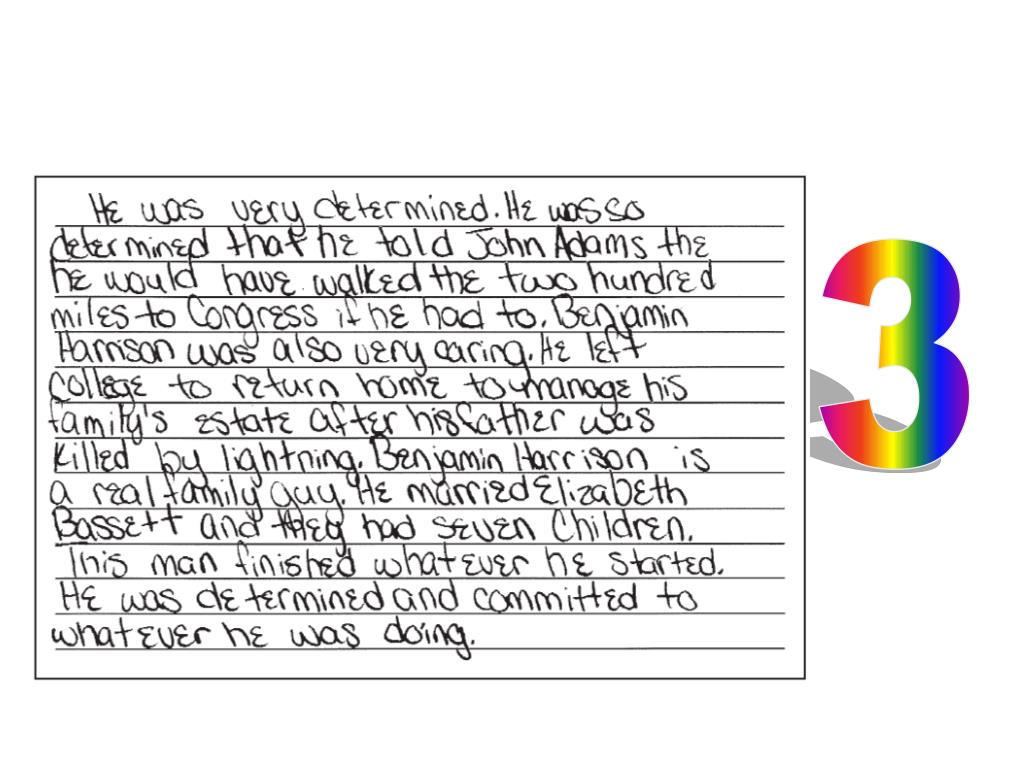 He was very determined. He was so
determined that he told John Adams the
he would have walked the two hundred
miles to Congress if he had to. Benjamin
Harrison was also very caring. He left
college to return home to manage his
family's estate after his father was
killed by lightning. Benjamin Harrison is
a real family guy. He married Elizabeth
Bassett and they had seven Children.
This man finished whatever he started.
He was determined and committed to
whatever he was doing.
3